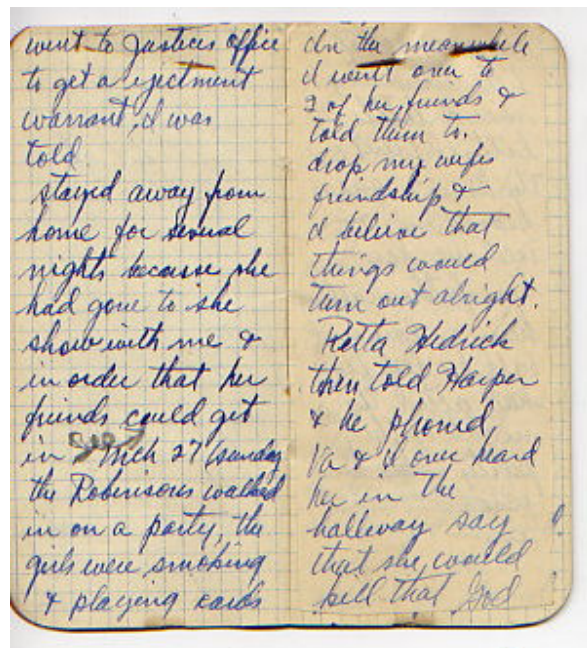 went to Justices office
to get a ejectment
warrant, I was
told
stayed away from
home for several
nights because she
had gone to she
show with me &
in order that her
friends could get
in see Mch 27 Sunday
the Robinsons walked
in on a party, the
girls were smoking
& playing cards
In the meanwhile
I went over to
2 of her friends &
told them to.
drop my wifes
friendship &
I believe that
things would
turn out alright.
Retta Hedrick
then told Harper
& he phoned,
Va & I over heard
her in the
hallway say
that she would
kill that God